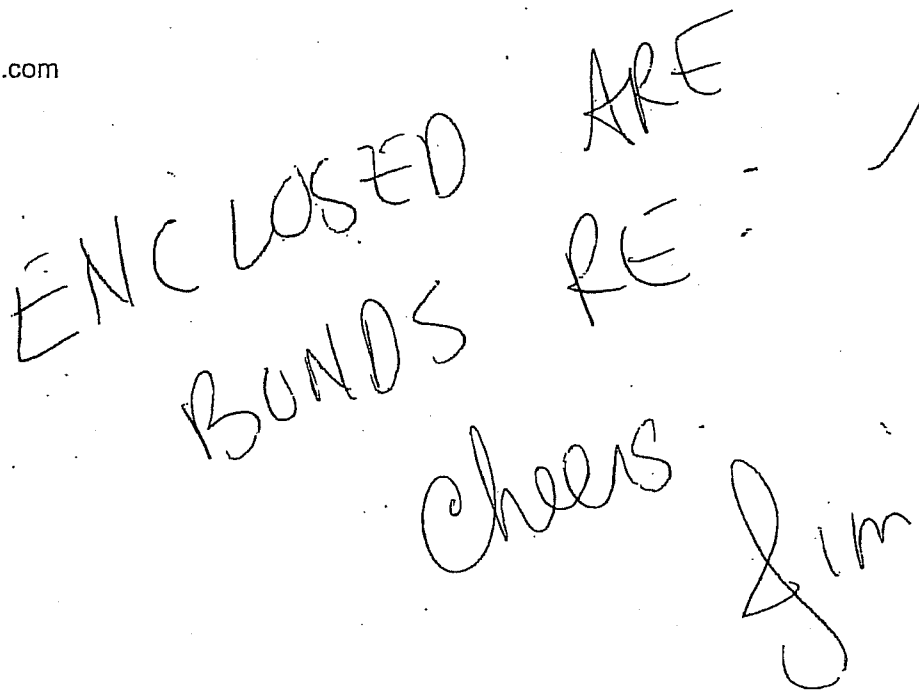 .com
ENCLOSED ARE
BONDS RE:
Cheers
Jim